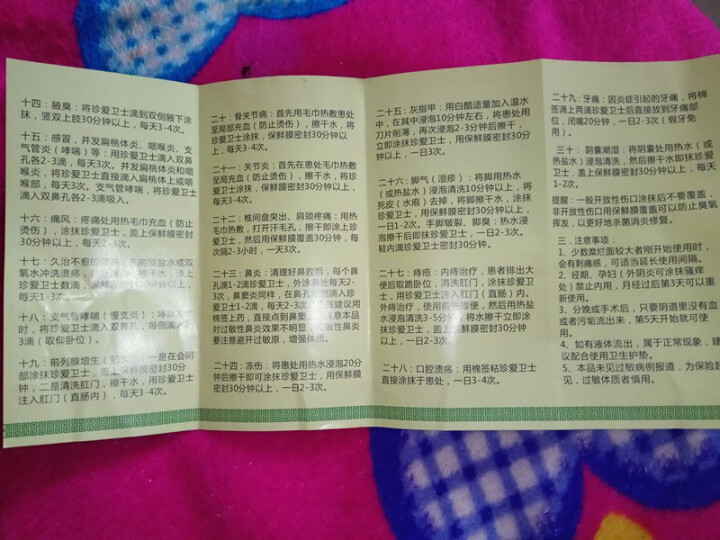 十四：腋臭：将珍爱卫士滴到双侧腋下涂
抹，竖双上肢30分钟以上，每天3-4次。
十五：感冒，并发扁桃体炎、咽喉炎、支
气管炎（哮喘）等：用珍爱卫士滴入双鼻
孔各2-3滴，每天3次。并发扁桃体炎和咽
喉炎，将珍爱卫士直接滴入扁桃体上或咽
喉部，每天3次。支气管哮喘，将珍爱卫士
滴入双鼻孔各2-3滴吸入。
十六：痛风：疼痛处用热毛巾热敷（防止
烫伤），涂抹珍爱卫士，盖上保鲜膜密封
30分钟以上，每天2-3次。
十七：久治不愈的
氧水冲洗溃疡
珍爱卫士数滴，
每天1-3次。
十八：支气管哮喘（慢支炎）：
时，将珍爱卫士滴入双鼻孔，每侧滴
3滴（取仰卧位）。
十九：前列腺增生 ：一是在会阴
部涂抹珍爱卫士，盖上保鲜膜密封30分
钟，二是清洗肛门，擦干水，用珍爱卫士
注入肛门（直肠内），每天3-4次。
二十：骨关节病：首先用毛巾热敷患处
至局部充血（防止烫伤），擦干水，将
珍爱卫士涂抹，保鲜膜密封30分钟以
上，每天3-4次。
二十一：关节炎：首先在患处毛巾热敷
至局充血（防止烫伤），擦干水，将珍
爱卫士涂抹，用保鲜膜密封30分钟以上，
每天3-4次。
二十二：椎间盘突出、肩颈疼痛：用热
毛巾热敷，打开汗毛孔，擦干即涂上珍
爱卫士，然后用保鲜膜覆盖30分钟，每
次隔2-3小时，一天3次。
二十三：鼻炎：清理好鼻腔后，每个鼻
孔滴1-2滴珍爱卫士，外涂鼻处每天2-
3次，鼻窦炎同样，在鼻孔深处滴入珍
爱卫士1-2滴，每天2-3次
棉签上药，直接点到鼻窦
对过敏性鼻炎效果不明显，
要注意避开过敏原，增强体质。
二十四：冻伤：将患处用热水浸泡20分
钟后擦干即可涂抹珍爱卫士，用保鲜膜
密封30分钟以上，一日2-3次。
二十五：灰指甲：用白醋适量加入温水
中，在其中浸泡10分钟左右，将患处用
刀片削薄，再次浸泡2-3分钟后擦干，
立即涂抹珍爱卫士，用保鲜膜密封30分钟
以上，一日3次。
二十六：脚气（湿疹）：将脚用热水
（或热盐水）浸泡清洗10分钟以上，将
死皮（水疱）去掉，将脚擦干水，涂抹
珍爱卫士，用保鲜膜密封30分钟以上，
一日1-2次。手脚皲裂、脚臭：热水浸
泡擦干后即抹珍爱卫士，一日2-3次。
鞋内滴珍爱卫士密封30分钟。
二十七：痔疮：内痔治疗，患者排出大
便后取跪卧位，清洗肛门，涂抹珍爱卫
士，用珍爱卫士注入肛门（直肠）内。
外痔治疗，使用前
水浸泡清洗3-5分钟，将水擦干立即涂
抹珍爱卫士，用保鲜膜密封30分钟以上，
一日3次。
二十八：口腔溃疡：用棉签粘珍爱卫士
直接涂抹于患处，一日3-4次。
二十九：牙痛：因炎症引起的牙痛，将棉
签滴上两滴珍爱卫士后直接放到牙痛部
位，闭嘴20分钟，一日2-3次（假牙免
用）。
三十：阴囊潮湿：将阴囊处用热水（或
热盐水）浸泡清洗，然后擦干水即抹珍爱
卫士，用保鲜膜密封30分钟以上，每天
1-2次。
提醒：一般开放性伤口涂抹后不要覆盖，
非开放性伤口用保鲜膜覆盖可以防止臭氧
挥发，以更好地杀菌消炎修复。
三．注意事项：
1、少数糜烂面较大者刚开始使用时，
会有刺痛感，可适当延长使用间隔。
2、经期、孕妇（外阴炎可涂抹瘙痒
处）禁止内用，月经过后第3天可以重
新使用。
3、分娩或手术后，只要阴道里没有血
或者污垢流出来，第5天开始就可使
用。
4、如有液体流出，属于正常现象，建
议配合使用卫生护垫。
5、本品未见过敏病例报道，为保险起
见，过敏体质者慎用。